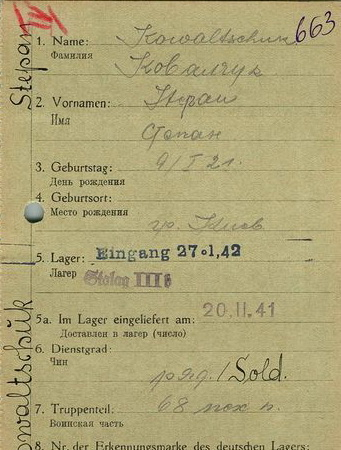 663
Stepan
Kowaltschuk
1. Name: Kowaltschuk
Фамилия
Ковалчук
2. Vornamen: Stepan
Имя
Степан
3. Geburtstag: 9/I 21.
День рождения
4. Geburtsort:
Место рождения
гр. Киев
5. Lager: Eingang 27.1.42
Лагер Stalag III
5a. Im Lager eingeliefert am: 20.11.41
Доставлен в лагер (число)
6. Dienstgrad:
Чин
ряд. / Sold.
7. Truppenteil: 68
Воинская часть
8. Nr. der Erkennungsmarke des deutschen Lagers: